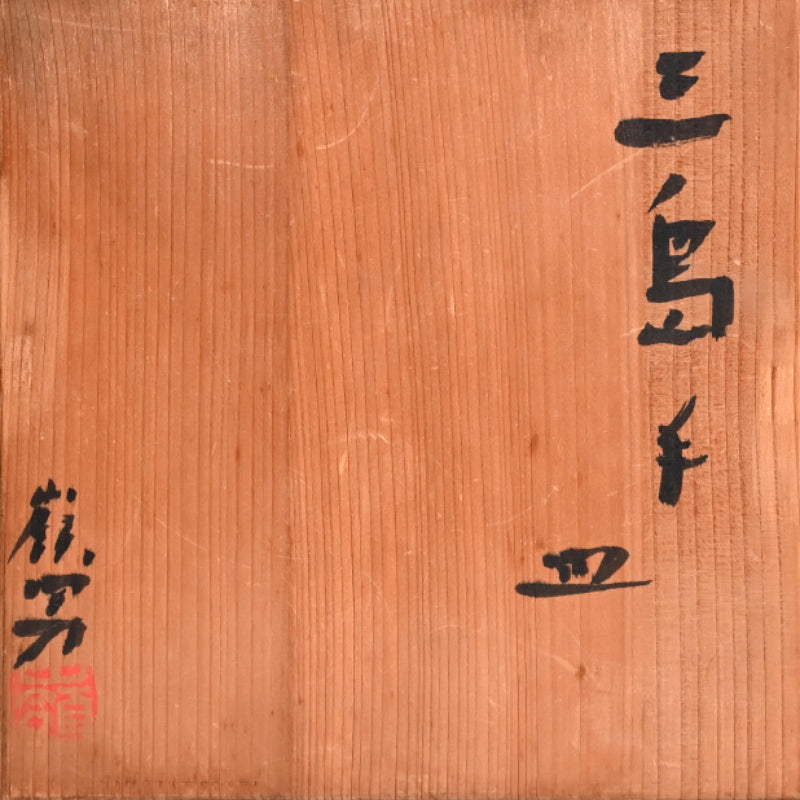 三島手
皿
嶺男